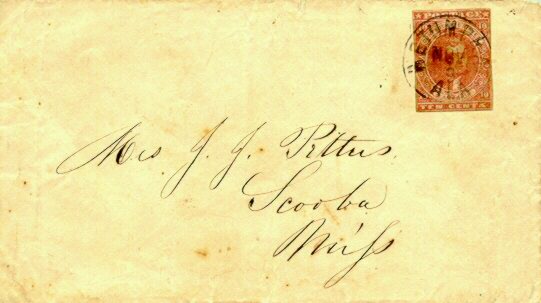 NOV
ALA
TEN CENTS
Mrs J. J. Pettus.
Scooba
Miſs